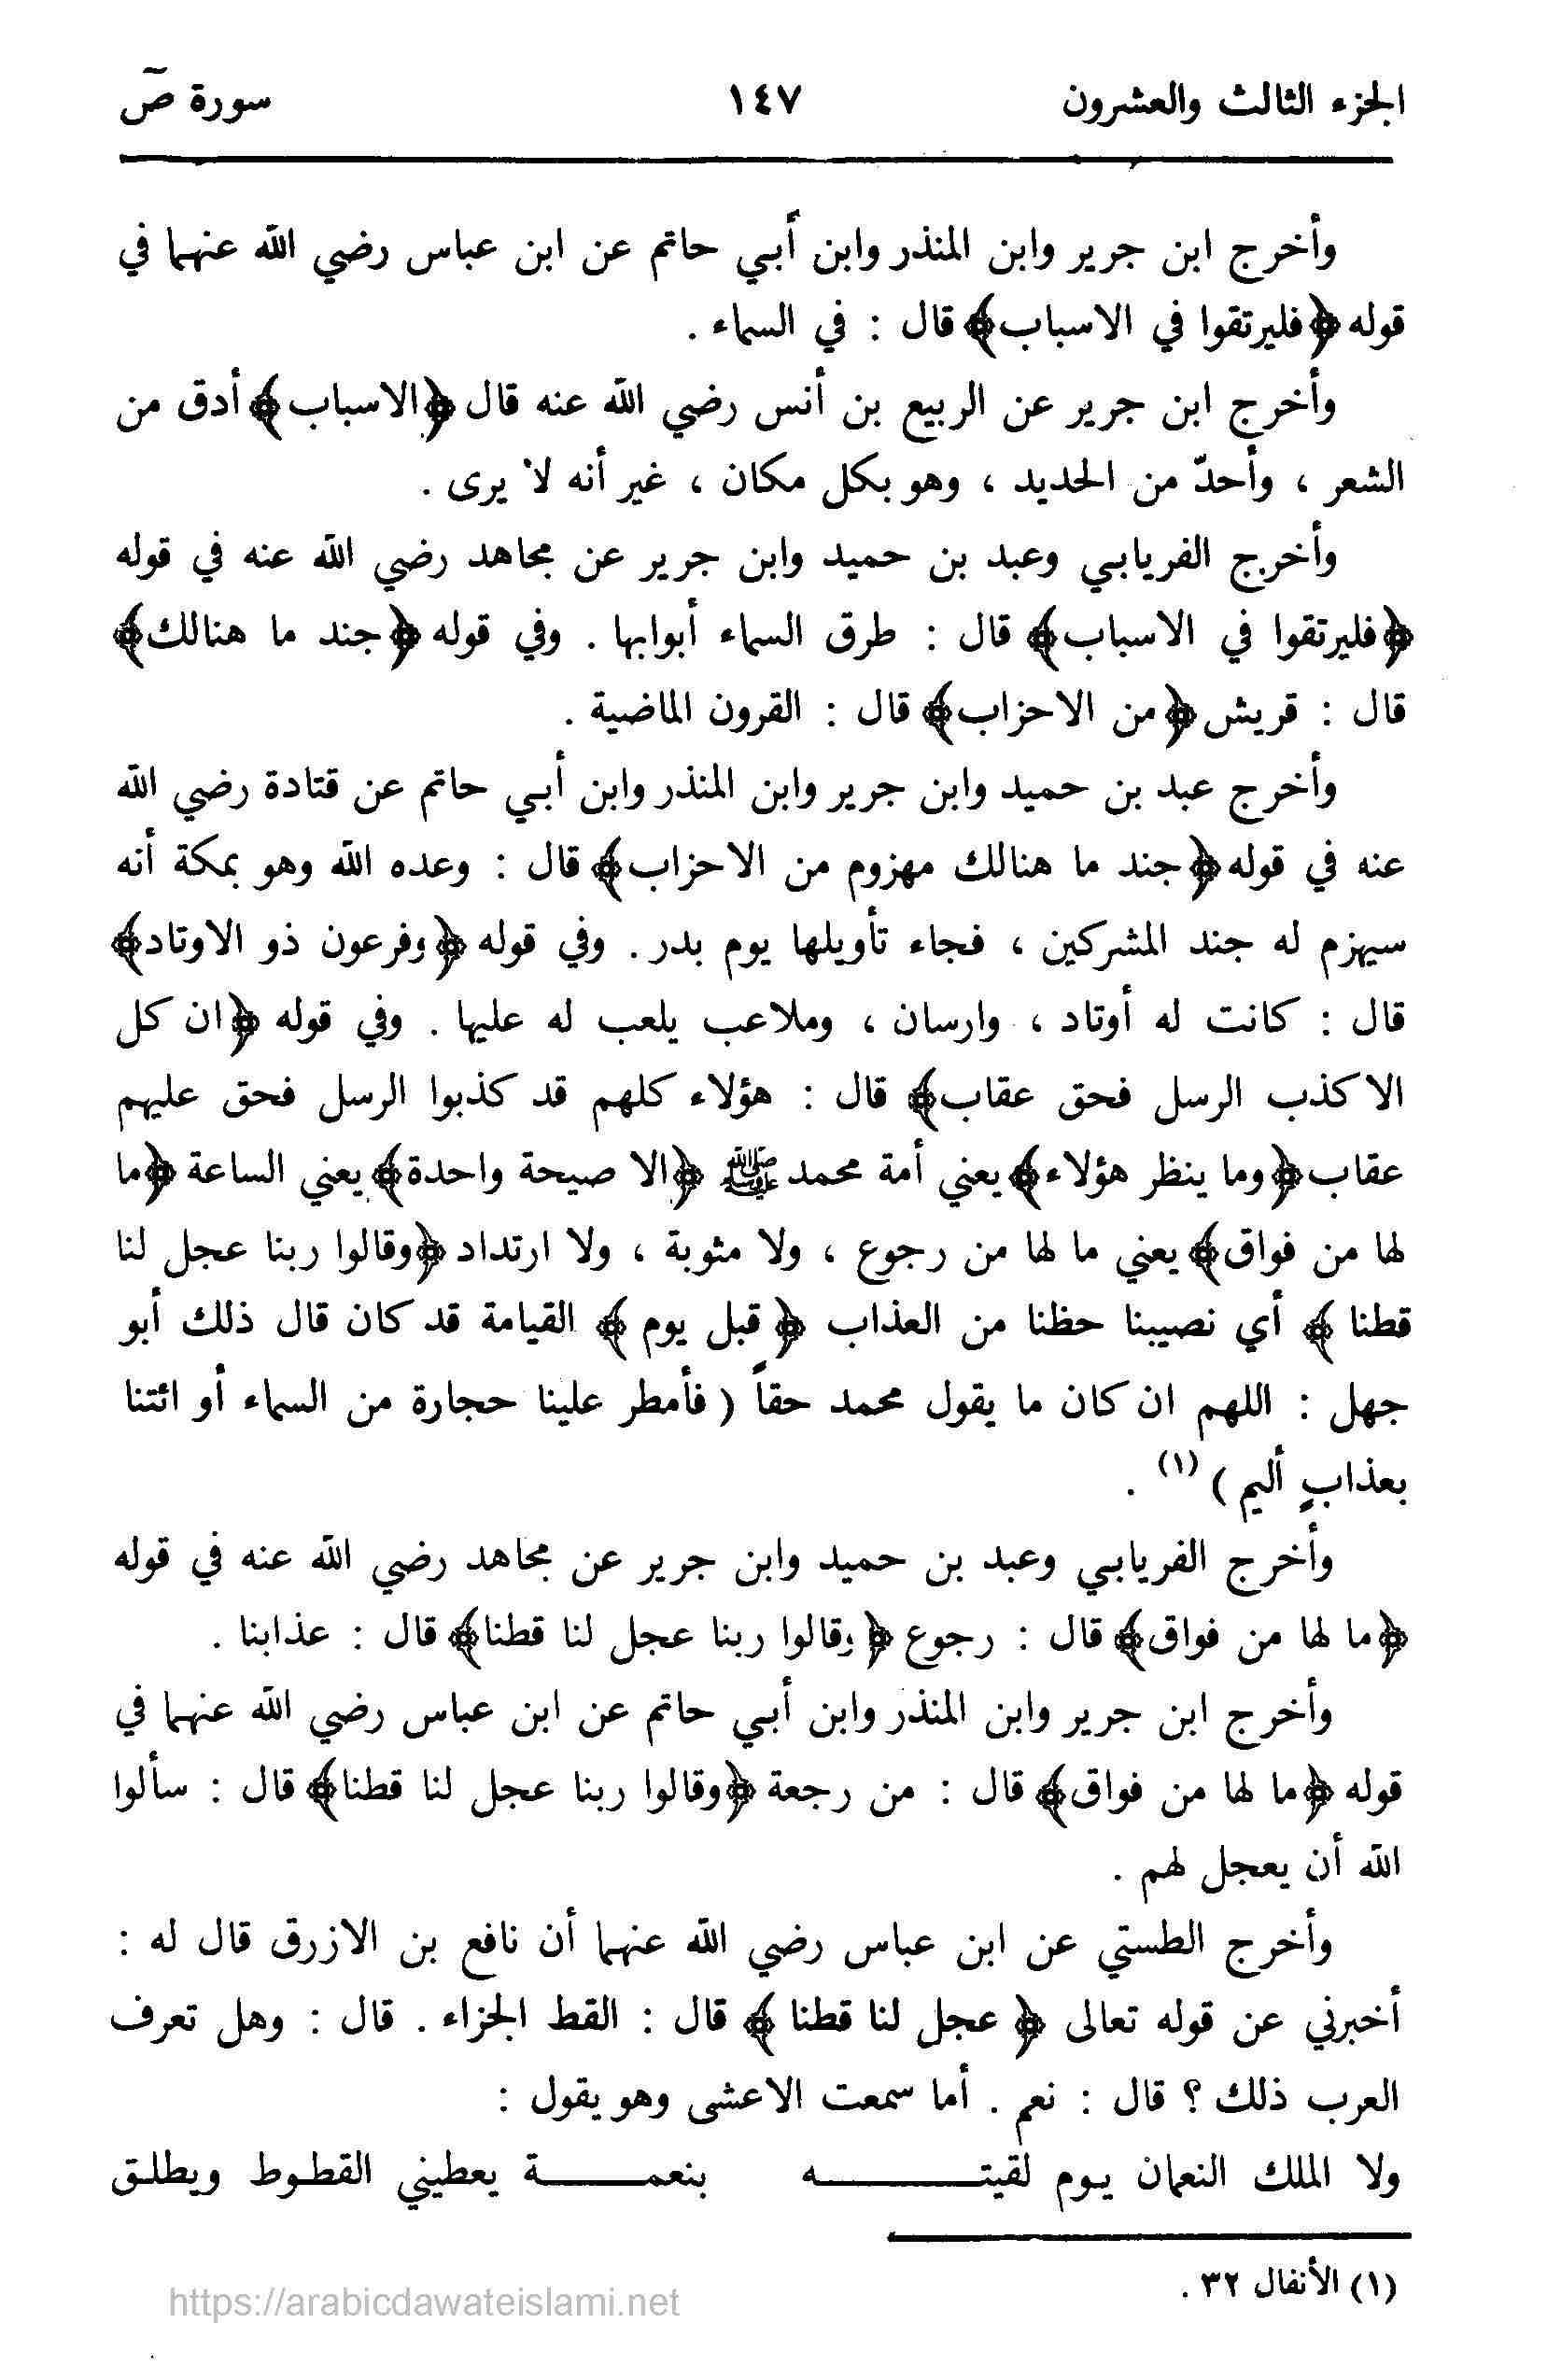 الجزء الثالث والعشرون ١٤٧ سورة صۤ
وأخرج ابن جرير وابن المنذر وابن أبي حاتم عن ابن عباس رضي الله عنهما في
قوله ﴿فليرتقوا في الاسباب﴾ قال : في السماء .
وأخرج ابن جرير عن الربيع بن أنس رضي الله عنه قال ﴿الاسباب﴾ أدق من
الشعر ، وأحدّ من الحديد ، وهو بكل مكان ، غير أنه لا يرى .
وأخرج الفريابي وعبد بن حميد وابن جرير عن مجاهد رضي الله عنه في قوله
﴿فليرتقوا في الاسباب﴾ قال : طرق السماء أبوابها . وفي قوله ﴿جند ما هنالك﴾
قال : قريش ﴿من الاحزاب﴾ قال : القرون الماضية .
وأخرج عبد بن حميد وابن جرير وابن المنذر وابن أبي حاتم عن قتادة رضي الله
عنه في قوله ﴿جند ما هنالك مهزوم من الاحزاب﴾ قال : وعده الله وهو بمكة أنه
سيهزم له جند المشركين ، فجاء تأويلها يوم بدر . وفي قوله ﴿وفرعون ذو الاوتاد﴾
قال : كانت له أوتاد ، وارسان ، وملاعب يلعب له عليها . وفي قوله ﴿ان كل
الا كذب الرسل فحق عقاب﴾ قال : هؤلاء كلهم قد كذبوا الرسل فحق عليهم
عقاب ﴿وما ينظر هؤلاء﴾ يعني أمة محمد ﷺ ﴿الا صيحة واحدة﴾ يعني الساعة ﴿ما
لها من فواق﴾ يعني ما لها من رجوع ، ولا مثوبة ، ولا ارتداد ﴿وقالوا ربنا عجل لنا
قطنا ﴾ أي نصيبنا حظنا من العذاب ﴿ قبل يوم ﴾ القيامة قد كان قال ذلك أبو
جهل : اللهم ان كان ما يقول محمد حقاً ( فأمطر علينا حجارة من السماء أو ائتنا
بعذابٍ أليم ) (١) .
وأخرج الفريابي وعبد بن حميد وابن جرير عن مجاهد رضي الله عنه في قوله
﴿ما لها من فواق﴾ قال : رجوع ﴿ وقالوا ربنا عجل لنا قطنا﴾ قال : عذابنا .
وأخرج ابن جرير وابن المنذر وابن أبي حاتم عن ابن عباس رضي الله عنهما في
قوله ﴿ما لها من فواق﴾ قال : من رجعة ﴿وقالوا ربنا عجل لنا قطنا﴾ قال : سألوا
الله أن يعجل لهم .
وأخرج الطستي عن ابن عباس رضي الله عنهما أن نافع بن الازرق قال له :
أخبرني عن قوله تعالى ﴿ عجل لنا قطنا ﴾ قال : القط الجزاء . قال : وهل تعرف
العرب ذلك ؟ قال : نعم . أما سمعت الاعشى وهو يقول :
ولا الملك النعمان يـوم لقيتـــــــه بنعمـــــــة يعطيني القطـوط ويطلـق
(١) الأنفال ٣٢ .
https://arabicdawateislami.net